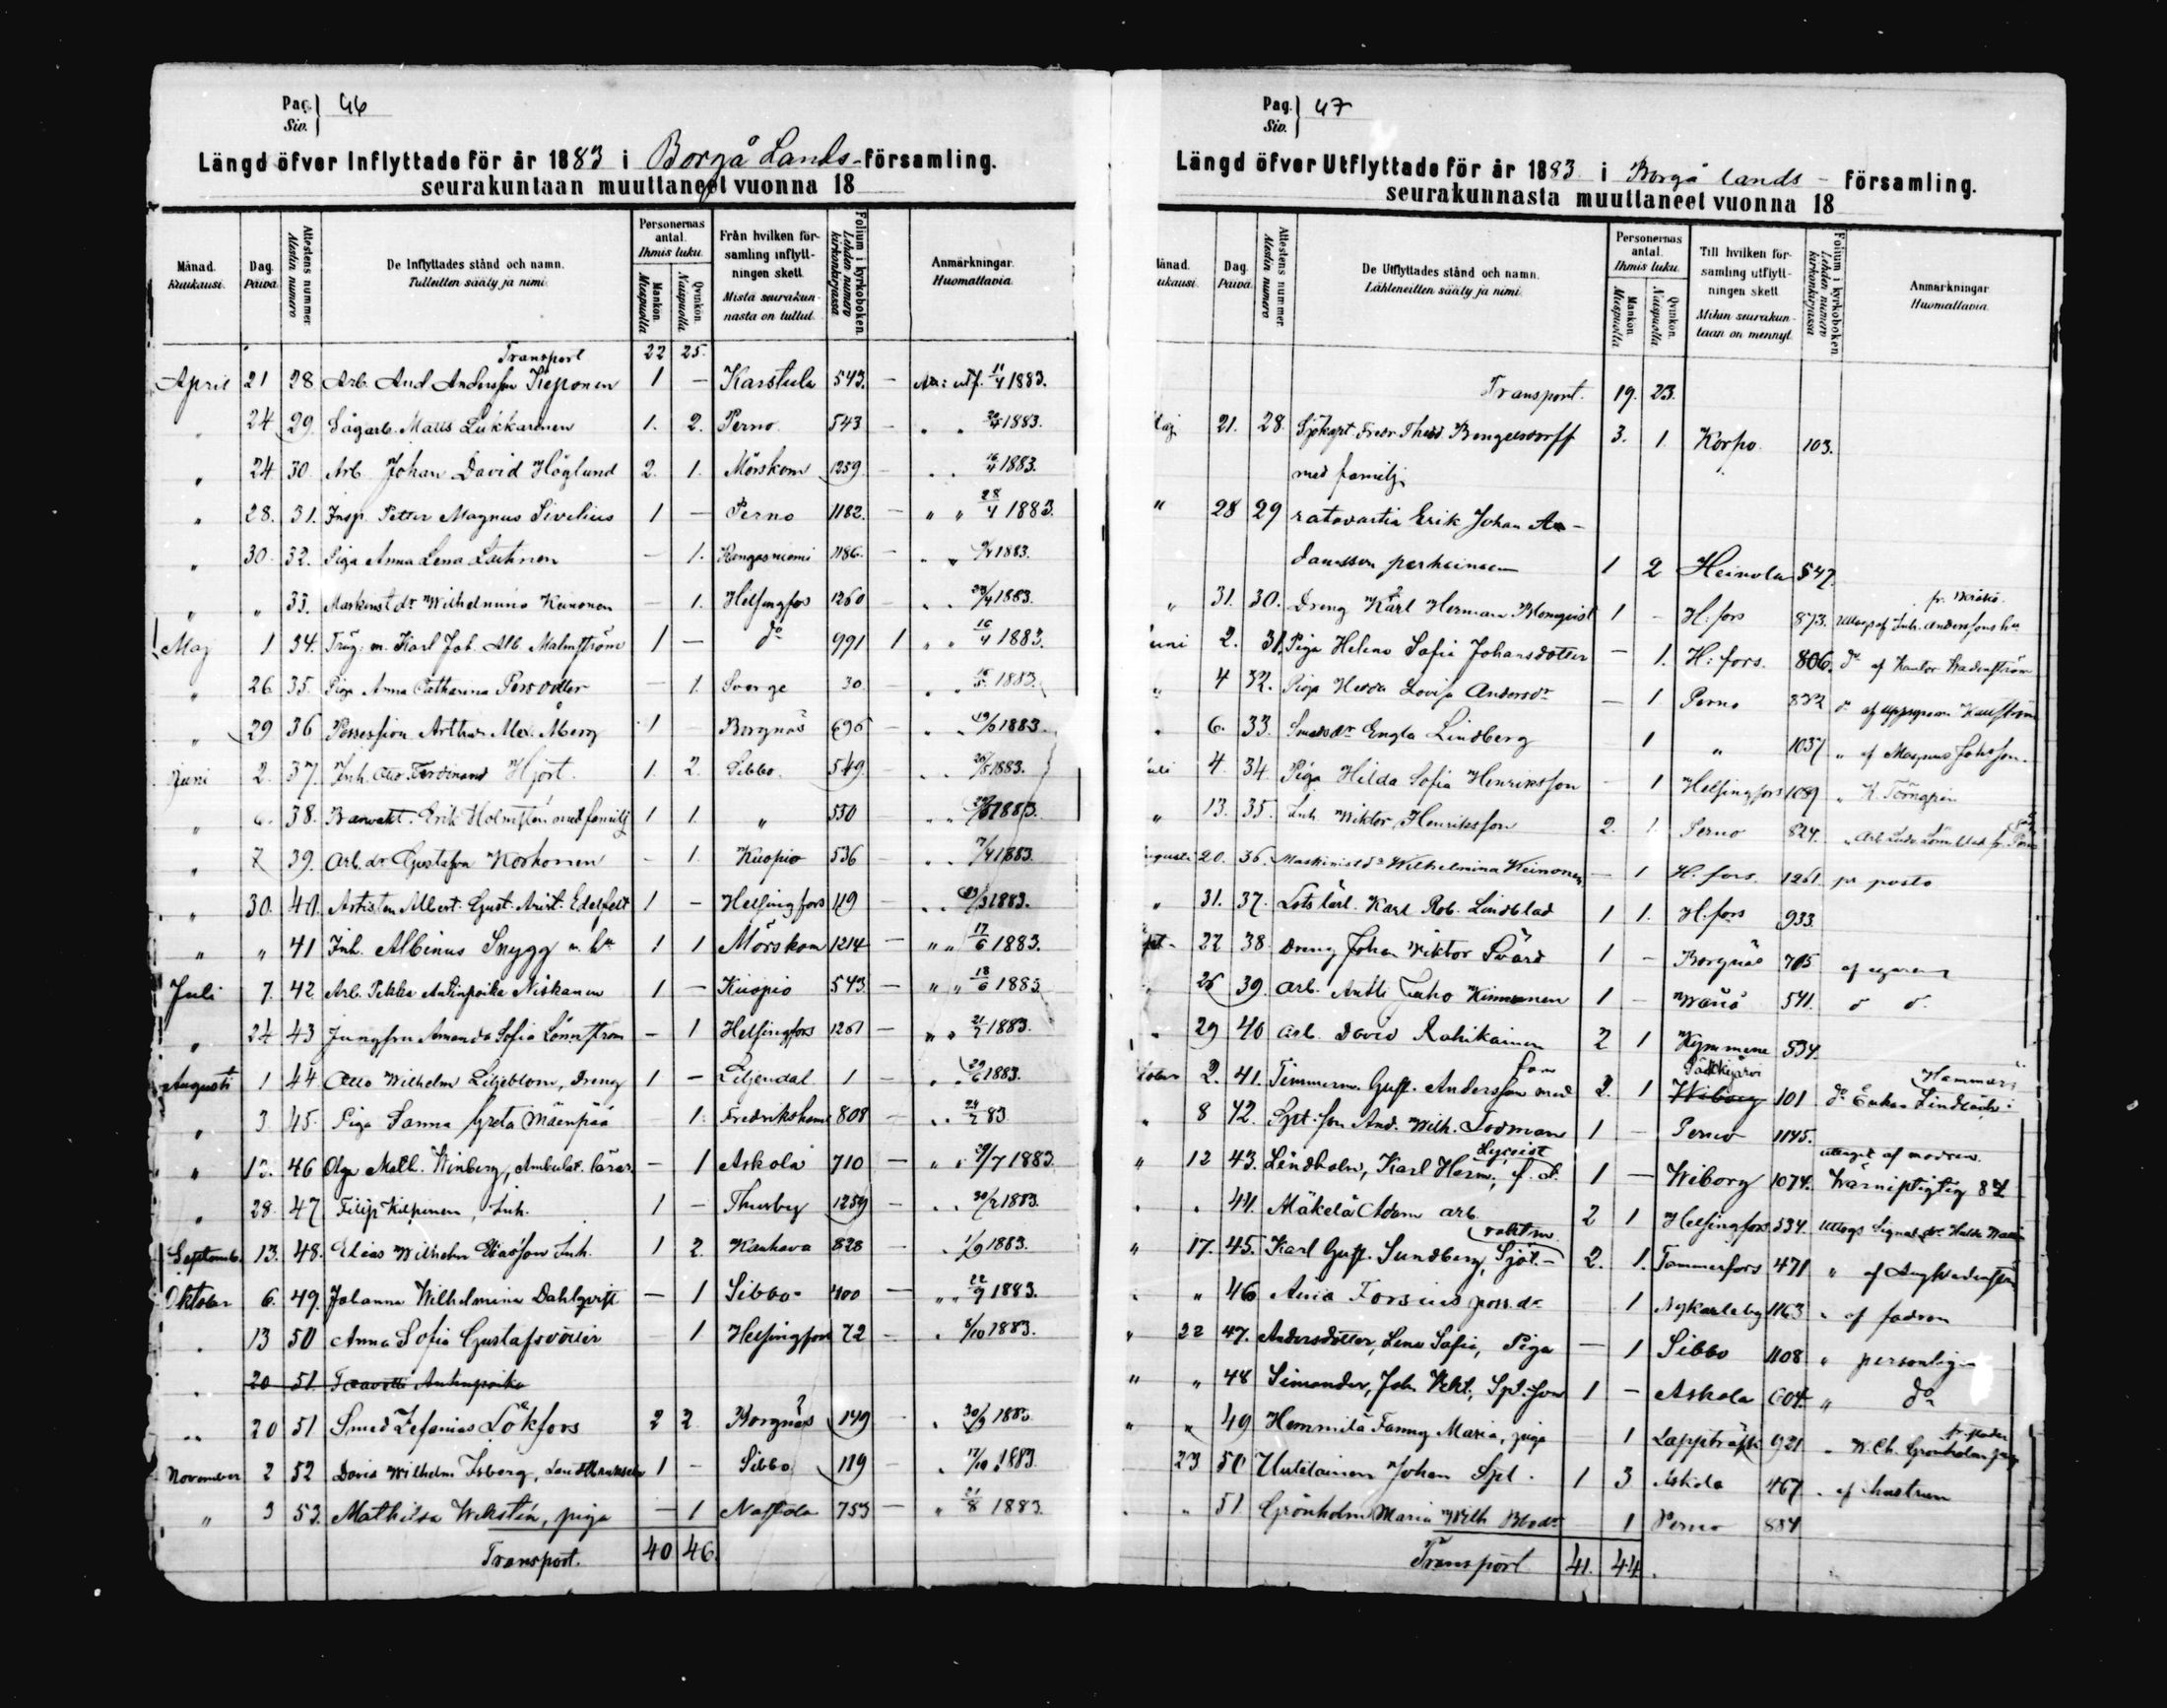 Pag. Siv. 46
Längd öfver Inflyttade för år 1883 i Borgå Lands-församling.
seurakuntaan muuttaneet vuonna 18
Månad. Kuukausi.
Dag. Päivä.
Attestens nummer. Atestin numero
De Inflyttades stånd och namn. Tulleitten sääty ja nimi.
Personernas antal. Ihmis luku.
Mankön. Miespuolia
Qvinkön. Naispuolia
Från hvilken församling inflyttningen skett. Mistä seurakunnasta on tullut.
Folium i kyrkoboken. Lehden numero kirkonkirjassa
Anmärkningar. Huomattavia
Transport 22 25.
April 21 28 Arb. And Andersson Keponen 1 — Karstula 543. — utf. 11/4 1883.
" 24 29. Sågarb. Matts Lukkarinen 1. 2. Perno. 543 — " " 1883.
" 24 30. Arb. Johan David Höglund 2. 1. Mörskom 1259 — " " 16/4 1883.
" 28. 31. Insp. Petter Magnus Sivelius 1 — Perno 1182. — " " 28/4 1883.
" 30. 32. Piga Anna Lena — 1. Kangasniemi 1186. — " " 1883.
" " 33. Maskinist dr Wilhelmina Keinonen — 1. Helsingfors 1260 — " " 28/4 1883.
Maj 1 34. Träg. m. Karl Joh. Alb. Malmström 1 — do 991 1 " " 16/4 1883.
" 26 35. Piga Anna Catharina Persdotter — 1. Sverge 30 — " " 1883.
" 29 36 Possession Arthur Alex. Åberg 1 Borgnäs 696 — " " 1883.
Juni 2. 37. Inh. Otto Ferdinand Hjort. 1. 2. Sibbo. 549. — " " 1883.
" 6. 38. Banvakt. Erik Holmsten med familj 1 1. " 530 — " " 1883.
" 7 39. Arb. dr Gustafva Korhonen — 1. Kuopio 536 — " " 7/4 1883.
" 30. 40. Artisten Albert Gust. Arist. Edelfelt 1 — Helsingfors 119 — " " 1883.
" " 41 Inh. Albinus Snygg m. hu 1 1 Mörskom 1214 — " " 17/6 1883.
Juli 7. 42 Arb. Pekka Antinpoika Niskanen 1 — Kuopio 543. — " " 18/6 1883
" 24 43 Jungfru Amanda Sofia Lönnström — 1 Helsingfors 1261 — " " 21/7 1883.
Augusti 1 44 Otto Wilhelm Liljeblom, Dreng 1 — Liljendal 1 — " 29/6 1883.
" 3. 45. Piga Sanna Greta Mäenpää 1. Fredrikshamn 808 — " " 24/7 83
" 46 Olga Math. Winberg, Ambulat. lärar. — 1 Askola 710 — " " 29/7 1883.
" 28. 47. Filip Kilpinen, Inh. 1 — Thusby 1259 — " " 1883.
Septemb. 13. 48. Elias Wilhelm Eliasson Inh. 1 2. Kauhava 828 — " 1/9 1883.
Oktober 6. 49. Johanna Wilhelmina Dahlqvist — 1 Sibbo 400 — " " 22/9 1883.
" 13 50 Anna Sofia Gustafsdotter 1 Helsingfors 72 — " 5/10 1883.
" 20 51. Taavetti Antinpoika
" 20 51 Smed Zefanias Lökfors 2 2 Borgnäs 149 — " 30/9 1883.
November 2 52 David Wilhelm Isberg, landtbruksel. 1 — Sibbo 119 — " 17/10 1883.
" 3 53. Mathilda Wikstén, piga — 1 Nastola 753 — " 21/8 1883.
Transport. 40 46.
Pag. Siv. 47
Längd öfver Utflyttade för år 1883 i Borgå lands- församling.
seurakunnasta muuttaneet vuonna 18
ånad. ukausi.
Dag. Päivä.
Attestens nummer. Atestin numero
De Utflyttades stånd och namn. Lähteneitten sääty ja nimi.
Personernas antal. Ihmis luku.
Mankön. Miespuolia
Qvinkön. Naispuolia
Till hvilken församling utflyttningen skett. Mihin seurakuntaan on mennyt.
Folium i kyrkoboken. Lehden numero kirkonkirjassa
Anmärkningar. Huomattavia.
Transport. 19. 23.
21. 28. Sjökapt. Fredr. Theod. Bengelsdorff 3. 1. Korpo. 103.
med familj.
" 28 29 ratavartia Erik Johan Aa-
damsson perheineen 1 2 Heinola 547.
" 31. 30. Dreng Karl Herman Blomqvist 1 - H:fors 873. Uttags af Inh. Anderssons hu
uni 2. 31. Piga Helena Sofia Johansdotter — 1. H:fors. 806. do af Kantor
" 4 32. Piga Hedda Lovisa Andersdr — 1 Perno 832
" 6. 33. Smedsdr Engla Lindberg 1 " 1037 " af Magnus Johansson.
uli 4. 34. Piga Hilda Sofia Henriksson — 1 Helsingfors 1089 " K. Törngren
" 13. 35. Inh. Wiktor Henriksson 2. 1. Perno 824.
ugusti 20. 36. Maskinistdr Wilhelmina Keinonen — 1 H.fors. 1261 pr posto
" 31. 37. Lotslärl. Karl Rob. Lindblad 1 1. H.fors 933.
22 38. Dreng Johan Viktor Svärd 1 - Borgnäs 705 af egaren
26 39. Arb. Antti Juho Kinnunen 1 - 541. d d.
" 29 40 Arb. David Rahikainen 2 1 Kymmene 534.
2. 41. Timmerm. Gust. Andersson med fam 2. 1 Wiborg Säkkijärvi 101 do Enkan Lindbäck i Hammars
" 8 42. Spt.son And. Wilh. Fodman 1 — Perno 1145. uttaget af modren.
" 12 43. Lindholm, Karl Herm., f.d. Lyceist 1 — Wiborg 1074. Wärnepligtig 84
" " 44. Mäkelä Adam arb. 2 1 Helsingfors 534.
" 17. 45. Karl Gust. Sundberg, 2. 1. Tammerfors 471
" " 46 Aina Forsius poss.dr 1 Nykarleby 1163 " af fadren
" 22 47. Andersdotter, Lena Sofia, Piga — 1 Sibbo 1108 " personlig
" " 48 Simander, Joh. Vikt. Spt.son 1 - Askola 604. " do
" " 49 Hemmilä Fanny Maria, piga 1 Lappträsk 921
" 23 50 Uutelainen Johan Spt. 1 3 Askola 467 " af hustrun
" " 51. Grönholm Maria Wilh 1 Perno 884
Transport 41. 44.